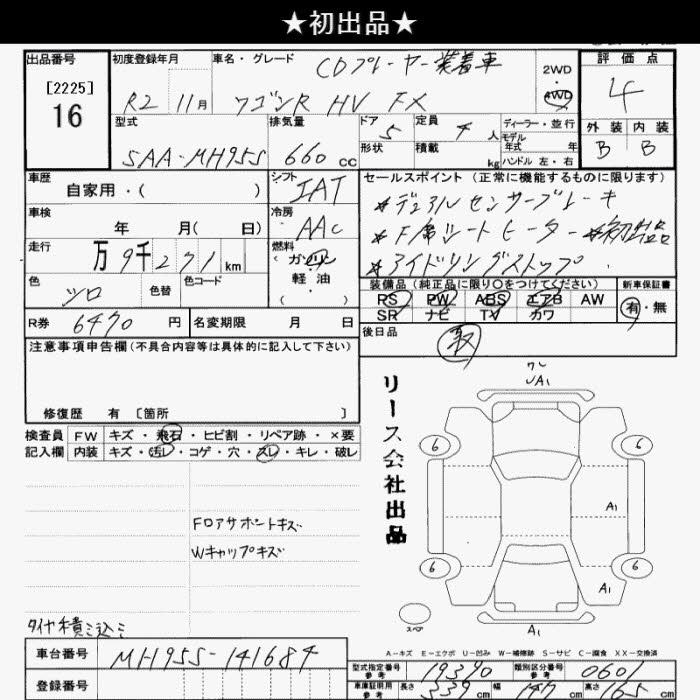 ★初出品★
出品番号
[2225]
16
初度登録年月
R2 11月
車名・グレード
CDプレーヤー装着車
ワゴンR HV FX
2WD
・
4WD
評価点
4
外装 内装
B B
型式
5AA-MH95S
排気量
660cc
ドア
5
形状
定員
4人
積載
kg
ディーラー・並行
モデル
年式 年
ハンドル 左・右
車歴
自家用・( )
シフト
IAT
車検
年 月( 日)
冷房
AAC
走行
万9千271km
燃料
(ガソリン
軽油
・ )
色
シロ
色替
色コード
R券 6470円
名変期限 月 日
セールスポイント(正常に機能するものに限ります)
*デュアルセンサーブレーキ
*F席シートヒーター *初出品
*アイドリングストップ
装備品(純正品に限り○をつけてください)
PS PW ABS エアB AW
SR ナビ TV カワ
新車保証書
有・無
後日品
取
注意事項申告欄(不具合内容等は具体的に記入して下さい)
修復歴 有 〔箇所 〕
検査員
記入欄
FW キズ・飛石・ヒビ割・リペア跡・×要
内装 キズ・汚レ・コゲ・穴・スレ・キレ・破レ
Fロアサポートキズ
Wキャップキズ
タイヤ積ミ込ミ
リース会社出品
ワレ
A1
6
6
A1
6
6
A1
スペア
A1
A-キズ E-エクボ U-凹み W-補修跡 S-サビ C-腐食 XX-交換済
車台番号
MH95S-141684
登録番号
型式指定番号
参考
19390
類別区分番号
参考
0601
車庫証明用
参考
長さ 339cm
幅 147cm
高さ 165cm